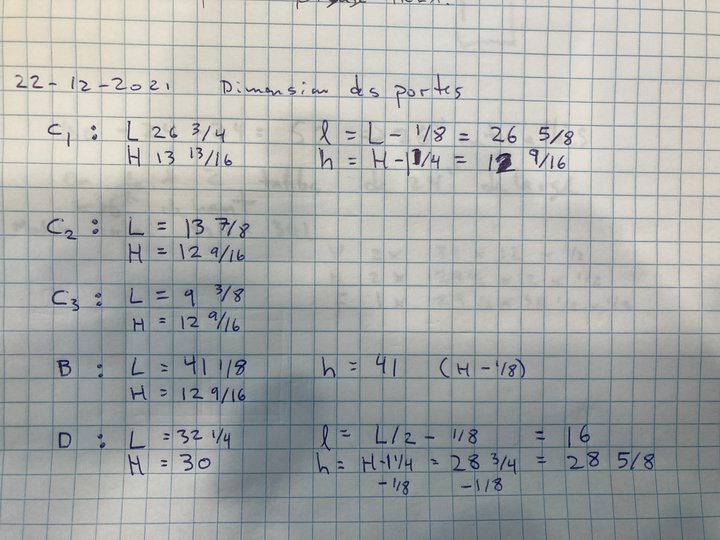 22-12-2021 Dimension des portes
C1 : L 26 3/4 l = L - 1/8 = 26 5/8
H 13 13/16 h = H-1 1/4 = 12 9/16
C2 : L = 13 7/8
H = 12 9/16
C3 : L = 9 3/8
H = 12 9/16
B : L = 41 1/8 h = 41 (H - 1/8)
H = 12 9/16
D : L = 32 1/4 l = L/2 - 1/8 = 16
H = 30 h = H-1 1/4 = 28 3/4 = 28 5/8
-1/8 -1/8